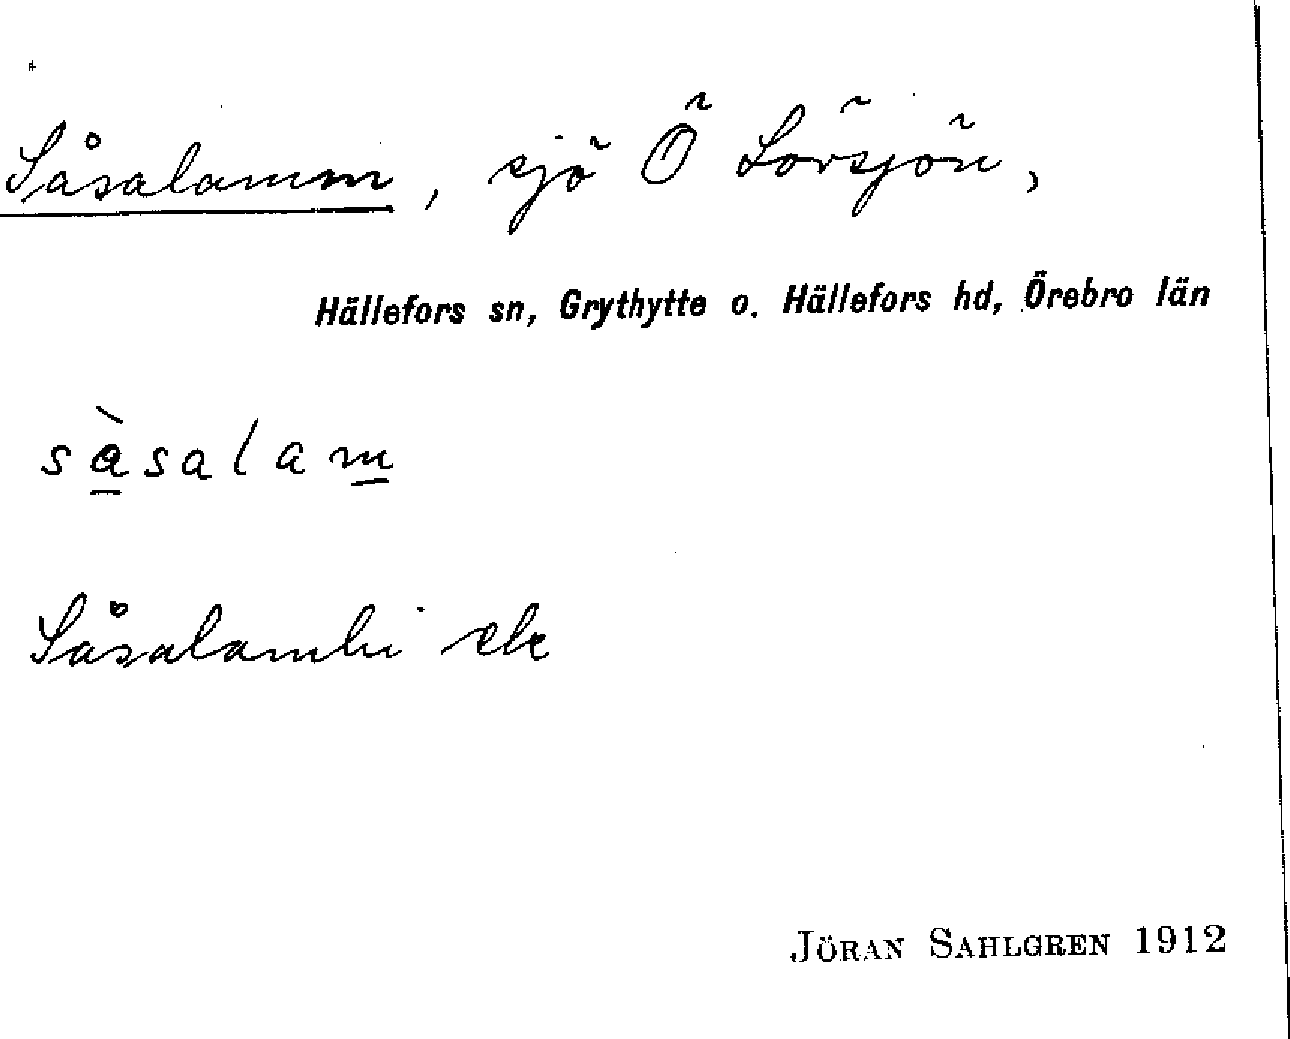 Såsalamm, sjö Ö Lörsjön,
Hällefors sn, Grythytte o. Hällefors hd, Örebro län
sàsalam
Såsalambi ek
JÖRAN SAHLGREN 1912